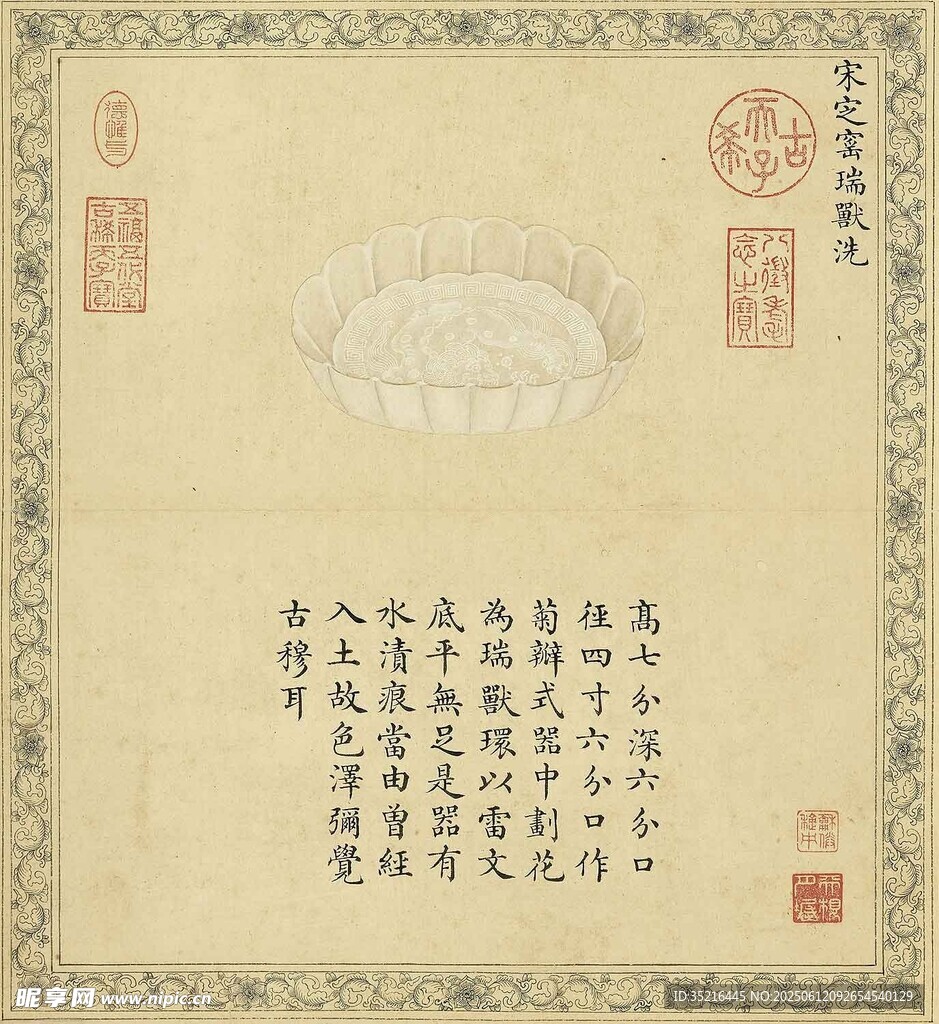 宋㝎窰瑞獸洗
古希天子
八徵耄念之寶
髙七分深六分口
徑四寸六分口作
菊瓣式器中劃花
為瑞獸環以雷文
底平無足是器有
水漬痕當由曾經
入土故色澤彌覺
古穆耳
五福五代堂
古稀天子寶
昵享网 www.nipic.cn
ID:35216445 NO:20250612092654540129